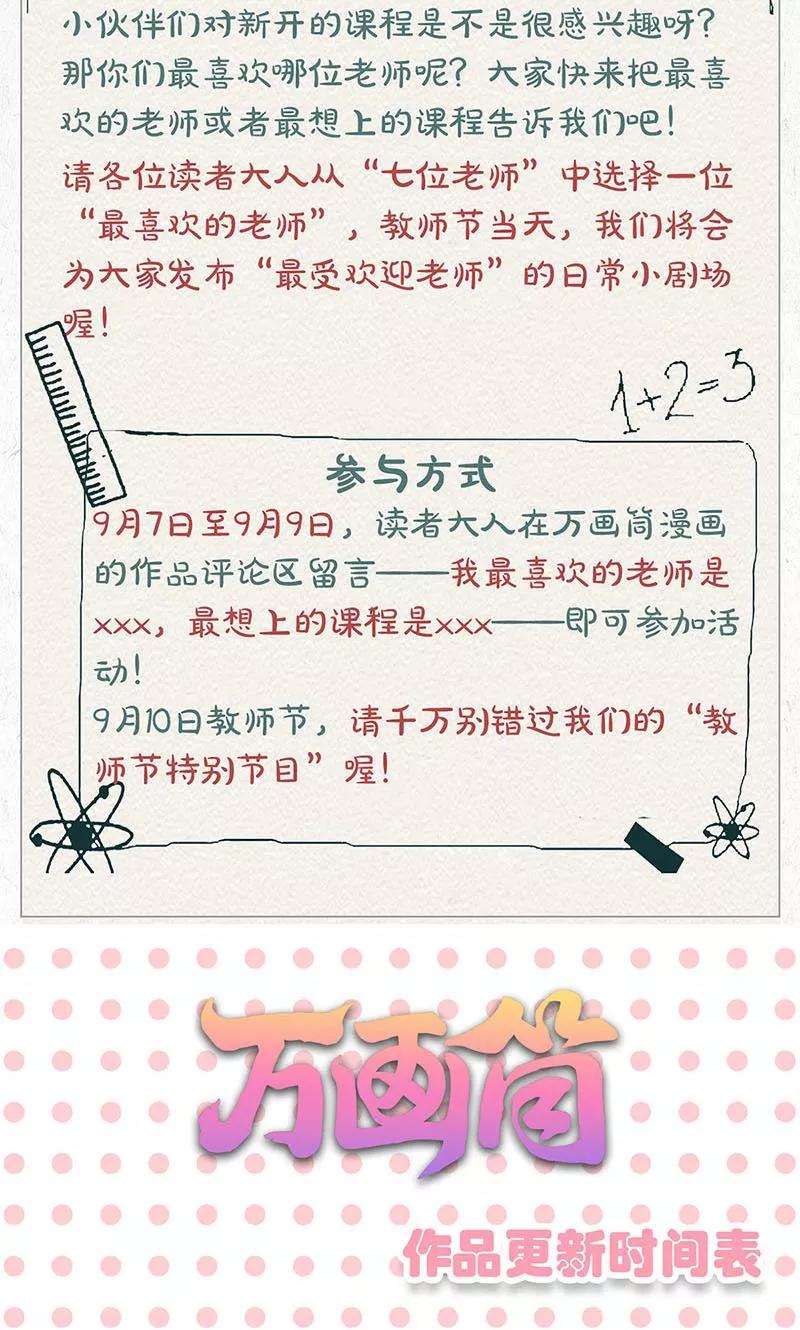 小伙伴们对新开的课程是不是很感兴趣呀？
那你们最喜欢哪位老师呢？大家快来把最喜
欢的老师或者最想上的课程告诉我们吧！
请各位读者大人从“七位老师”中选择一位
“最喜欢的老师”，教师节当天，我们将会
为大家发布“最受欢迎老师”的日常小剧场
喔！
1+2=3
参与方式
9月7日至9月9日，读者大人在万画筒漫画
的作品评论区留言——我最喜欢的老师是
xxx，最想上的课程是xxx——即可参加活
动！
9月10日教师节，请千万别错过我们的“教
师节特别节目”喔！
万画筒
作品更新时间表